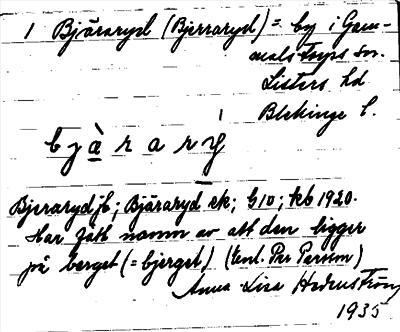 1 Bjäraryd (Bjerraryd) = by i Gam-
malstorps sn.
Listers hd
Blekinge l.
b y à r a r ý
Bjeraryd jb; Bjäraryd ek; G10; tkb 1920.
Har fått namn av att den ligger
på berget (= bjerget) (enl. Per Persson)
Anna Lisa Hedenström
1935